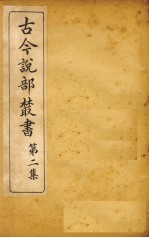 古今說部叢書
第二集